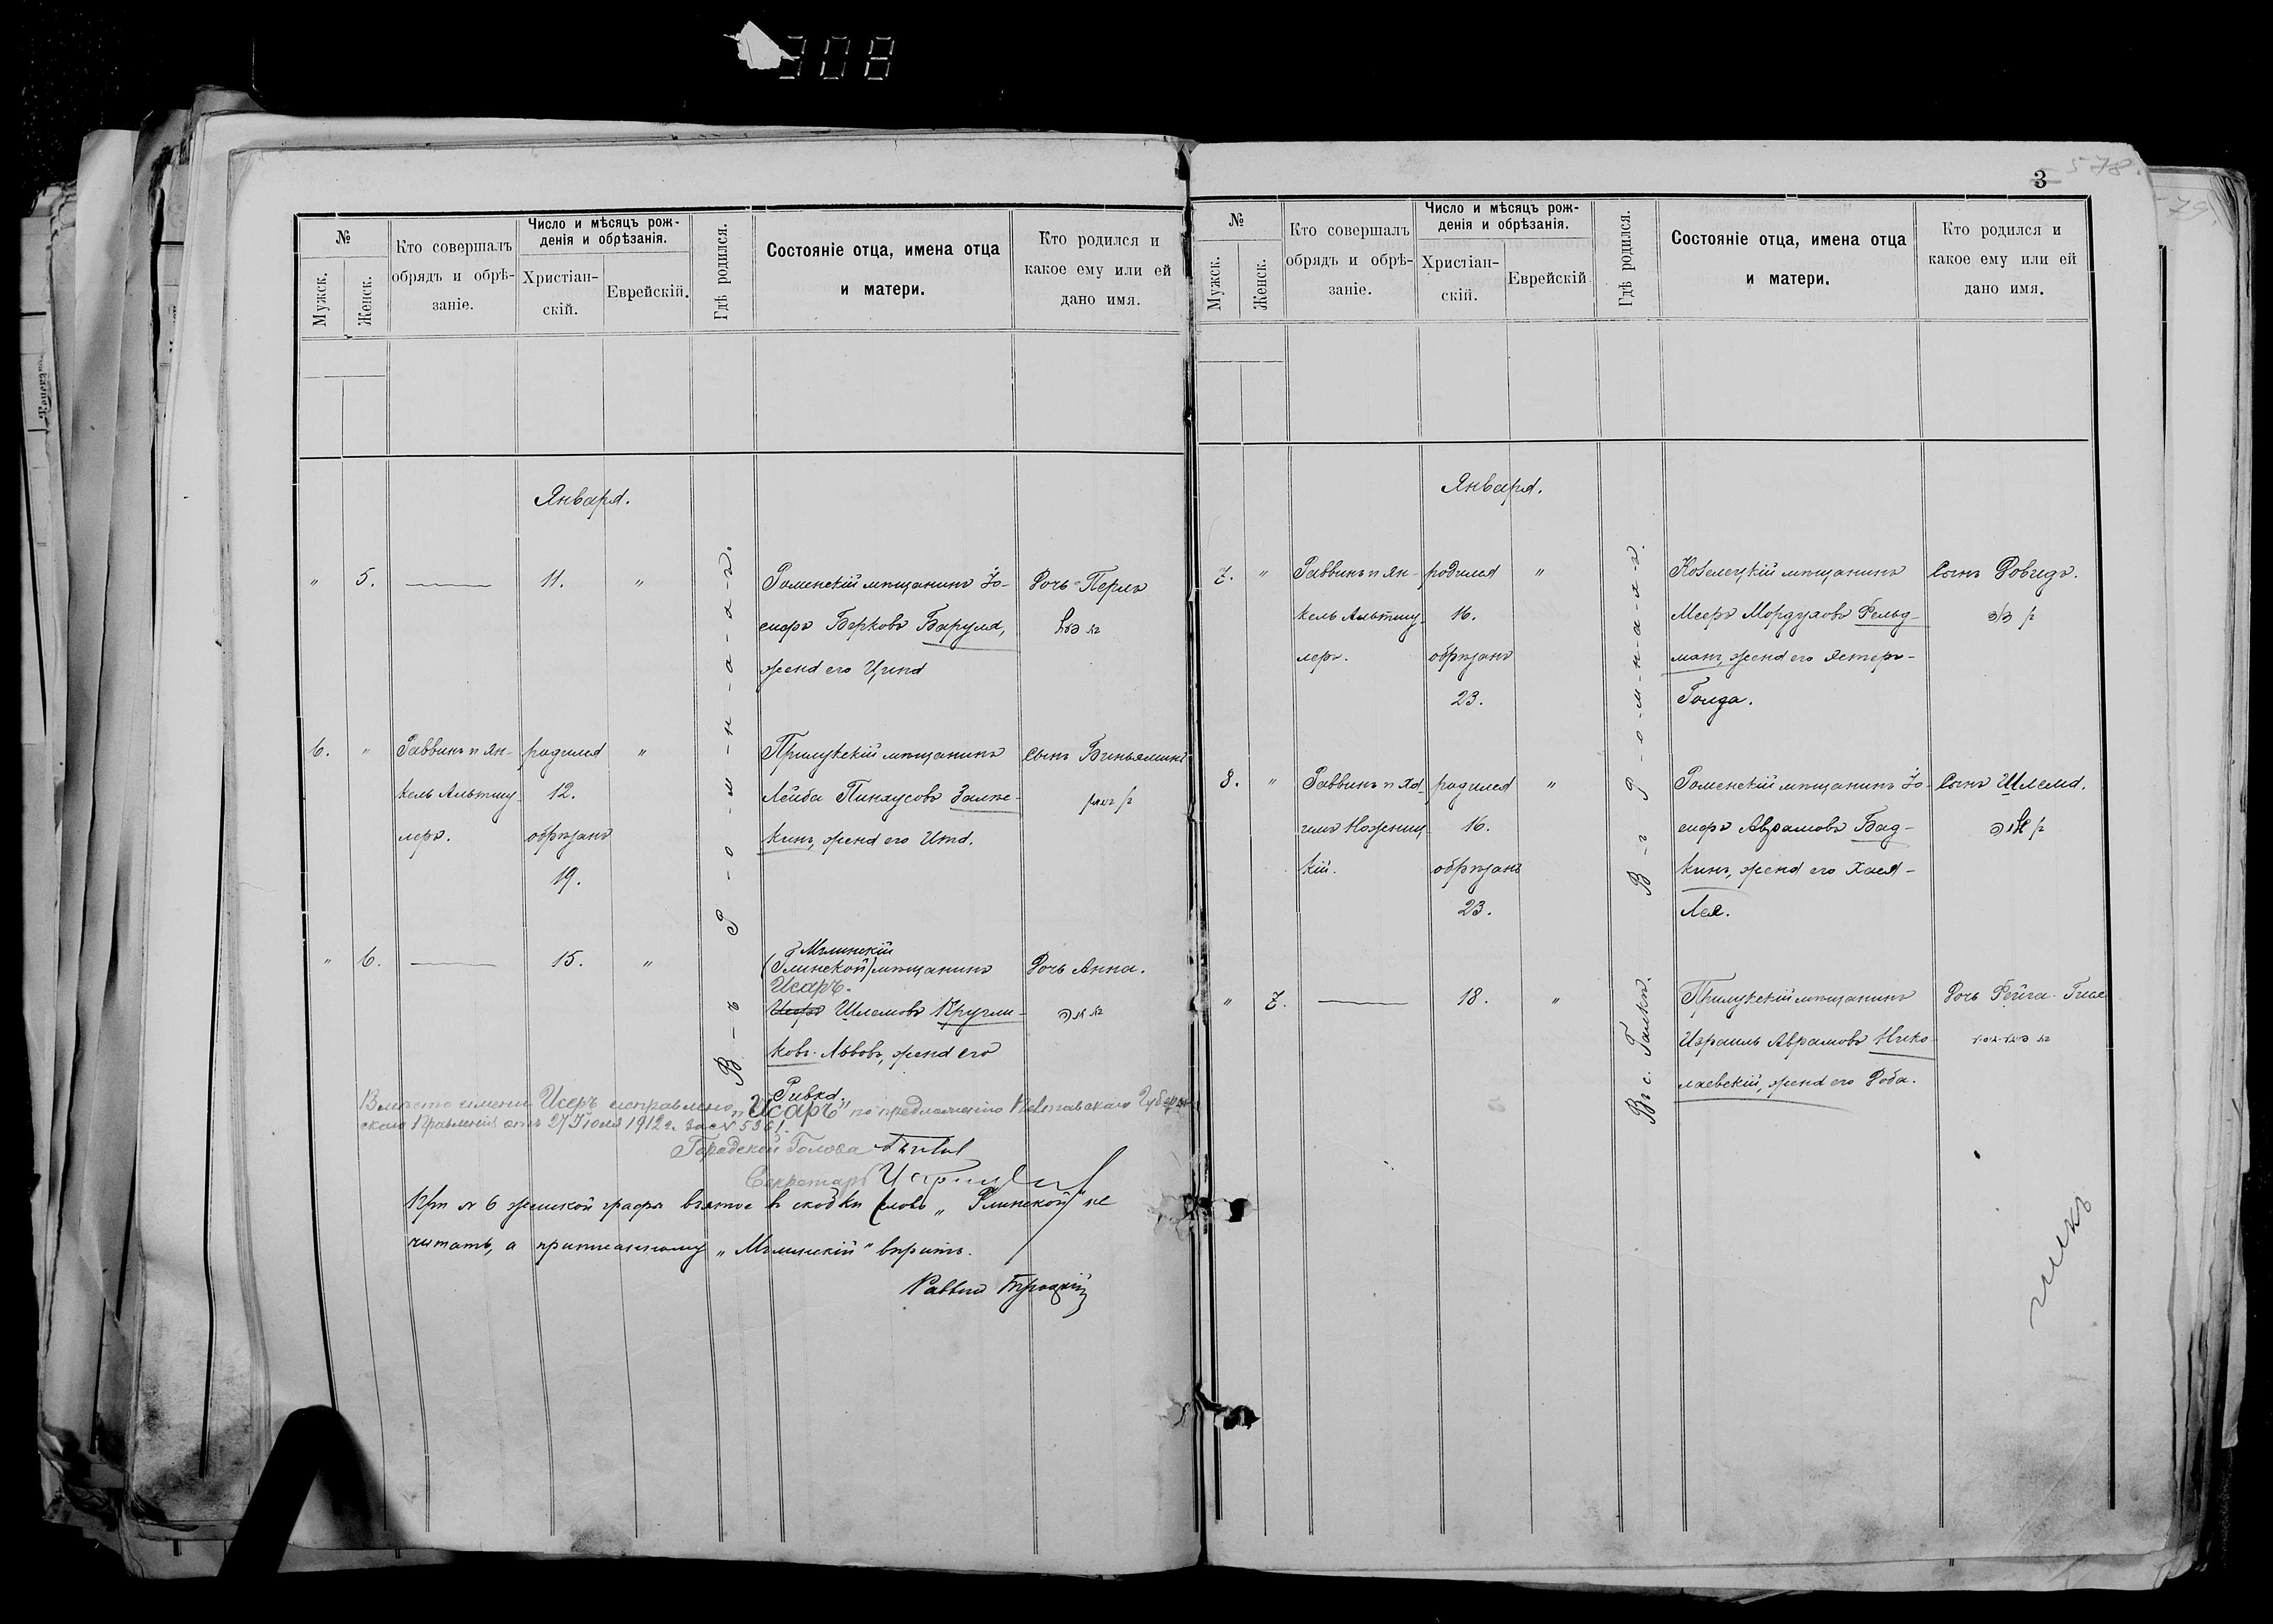 308
№
Мужск.
Женск.
Кто совершалъ
обрядъ и обрѣ-
заніе.
Число и мѣсяцъ рож-
денія и обрѣзанія.
Христіан-
скій.
Еврейскій.
Гдѣ родился.
Состояніе отца, имена отца
и матери.
Кто родился и
какое ему или ей
дано имя.
Января.
В-ъ Р-о-м-н-а-х-ъ.
" 5. 11. "
Роменскій мѣщанинъ Іо-
сифъ Берковъ Баруля,
жена егоЦипа
Дочь Перлъ
6. "
Раввинъ и Ян-
кель Альтшу-
леръ.
родился
12.
обрѣзанъ
19.
"
Прилукскій мѣщанинъ
Лейба Пинхусовъ Залпе-
кинъ, жена его Ита.
Сынъ Биньяминъ
בן
" 6. 15. "
Мглинскій
(Глинской) мѣщанинъ
Исаръ.
Шлемовъ Кругли-
ковъ-Львовъ, жена его
Ривка.
Дочь Анна.
Вмѣсто имени Исеръ исправлено „Исаръ" по предложенію Полтавскаго Губерн
скаго Правленія отъ 27 Іюля 1912 г. за № 5361.
Городской Голова
Секретарь
При № 6 женской графы взятое въ скобки слово „Глинской" не
читать, а приписанному „Мглинскій" вѣрить.
Раввинъ Троцкій
578.
3
№
Мужск.
Женск.
Кто совершалъ
обрядъ и обрѣ-
заніе.
Число и мѣсяцъ рож-
денія и обрѣзанія.
Христіан-
скій.
Еврейскій
Гдѣ родился.
Состояніе отца, имена отца
и матери.
Кто родился и
какое ему или ей
дано имя.
Января.
В-ъ Р-о-м-н-а-х-ъ.
7. "
Раввинъ и Ян-
кель Альтшу-
леръ.
родился
16.
обрѣзанъ
23.
"
Козелецкій мѣщанинъ
Мееръ Мордуховъ Фельд-
манъ, жена его Эстеръ-
Голда.
Сынъ Довидъ.
בן דוד
8. "
Раввинъ и Ха-
имъ Ножениц-
кій.
родился
16.
обрѣзанъ
23.
"
Роменскій мѣщанинъ Іо-
сифъ Аврамовъ Бад-
кинъ, жена его Хая-
Лея.
Сынъ Шлема.
בן
" 7. 18. "
Въ с. Галкѣ.
Прилукскій мѣщанинъ
Израиль Аврамовъ Нико-
лаевскій, жена его Доба.
Дочь Фейга-